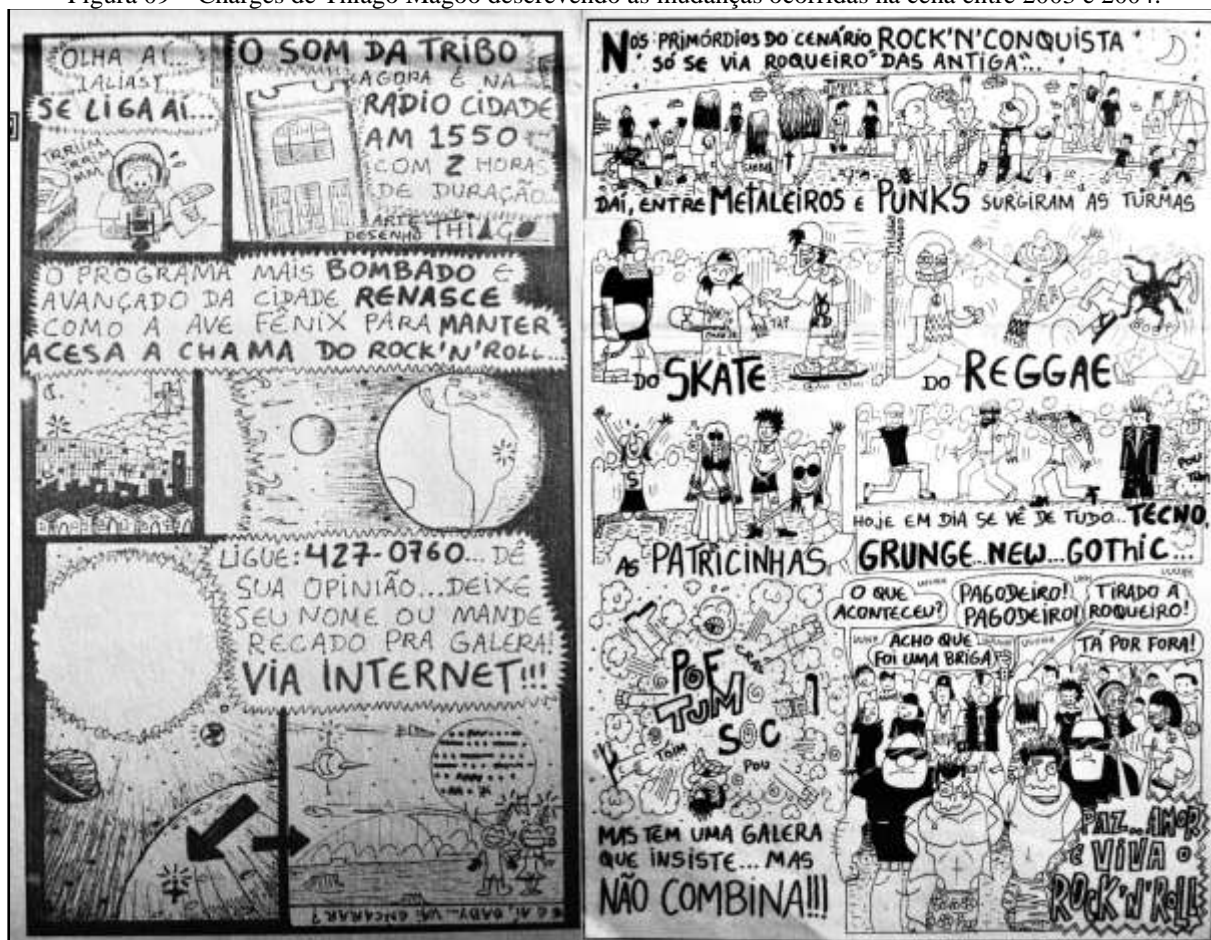 Figura 09 – Charges de Thiago Magoo descrevendo as mudanças ocorridas na cena entre 2003 e 2004.
OLHA AÍ...
SE LIGA AÍ...
O SOM DA TRIBO
AGORA É NA
RADIO CIDADE
AM 1550
COM 2 HORAS
DE DURAÇÃO...
ARTE
DESENHO THIAGO
O PROGRAMA MAIS BOMBADO E
AVANÇADO DA CIDADE RENASCE
COMO A AVE FÊNIX PARA MANTER
ACESA A CHAMA DO ROCK'N'ROLL...
LIGUE: 427-0760... DÊ
SUA OPINIÃO... DEIXE
SEU NOME OU MANDE
RECADO PRA GALERA!
VIA INTERNET!!!
E AÍ, BABY... VAI ENCARAR?
NOS PRIMÓRDIOS DO CENÁRIO ROCK'N'CONQUISTA
SÓ SE VIA ROQUEIRO "DAS ANTIGA"...
DAÍ, ENTRE METALEIROS E PUNKS SURGIRAM AS TURMAS
DO SKATE
TAP
DO REGGAE
AS PATRICINHAS
POU
HOJE EM DIA SE VÊ DE TUDO... TECNO,
GRUNGE... NEW... GOTHIC...
POF
TUM
SOC
TOIM
POU
MAS TEM UMA GALERA
QUE INSISTE... MAS
NÃO COMBINA!!!
O QUE
ACONTECEU?
PAGODEIRO!
PAGODEIRO!
TIRADO À
ROQUEIRO!
ACHO QUE
FOI UMA BRIGA!
TÁ POR FORA!
PAZ... AMOR
E VIVA O
ROCK'N'ROLL